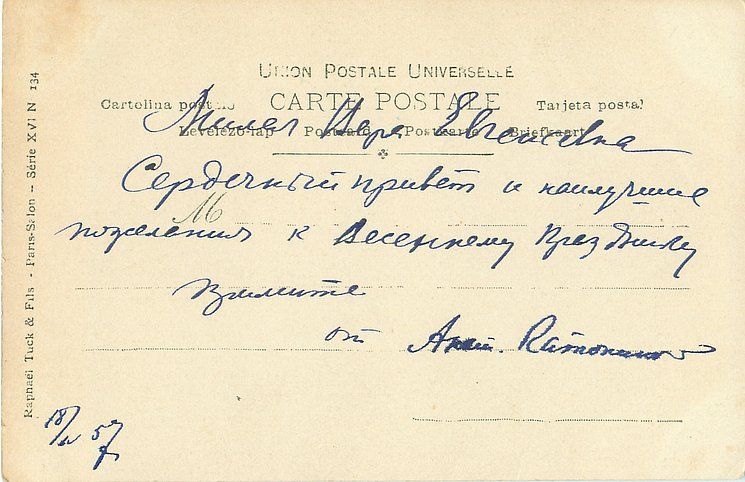 UNION POSTALE UNIVERSELLE
CARTE POSTALE
Cartolina postale Tarjeta postal
Levelező-lap Postcard Postcarte Briefkaart
Raphael Tuck & Fils - Paris-Salon -- Série XVI N 134
Милая Вера Евгеневна
Сердечный привет и наилучшие
М
пожелания к Весеннему празднику
примите
от
18/IV 57